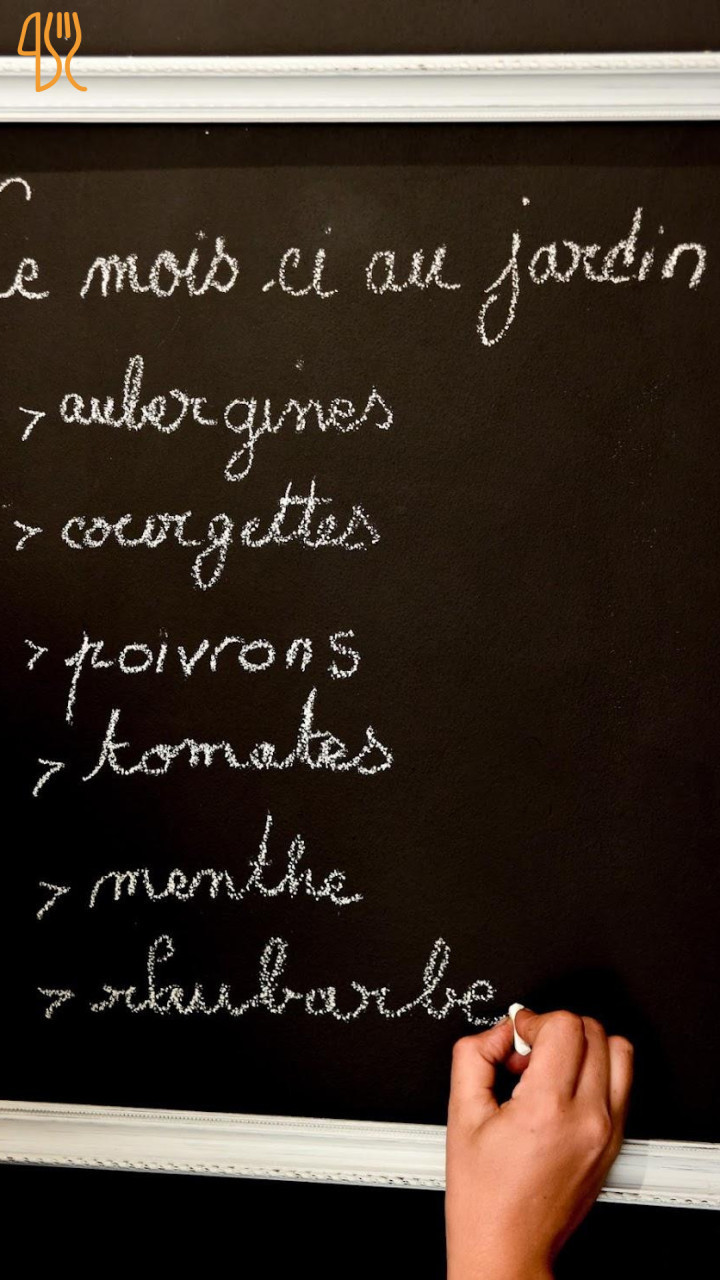 Ce mois ci au jardin
> aubergines
> courgettes
> poivrons
> tomates
> menthe
> rhubarbe